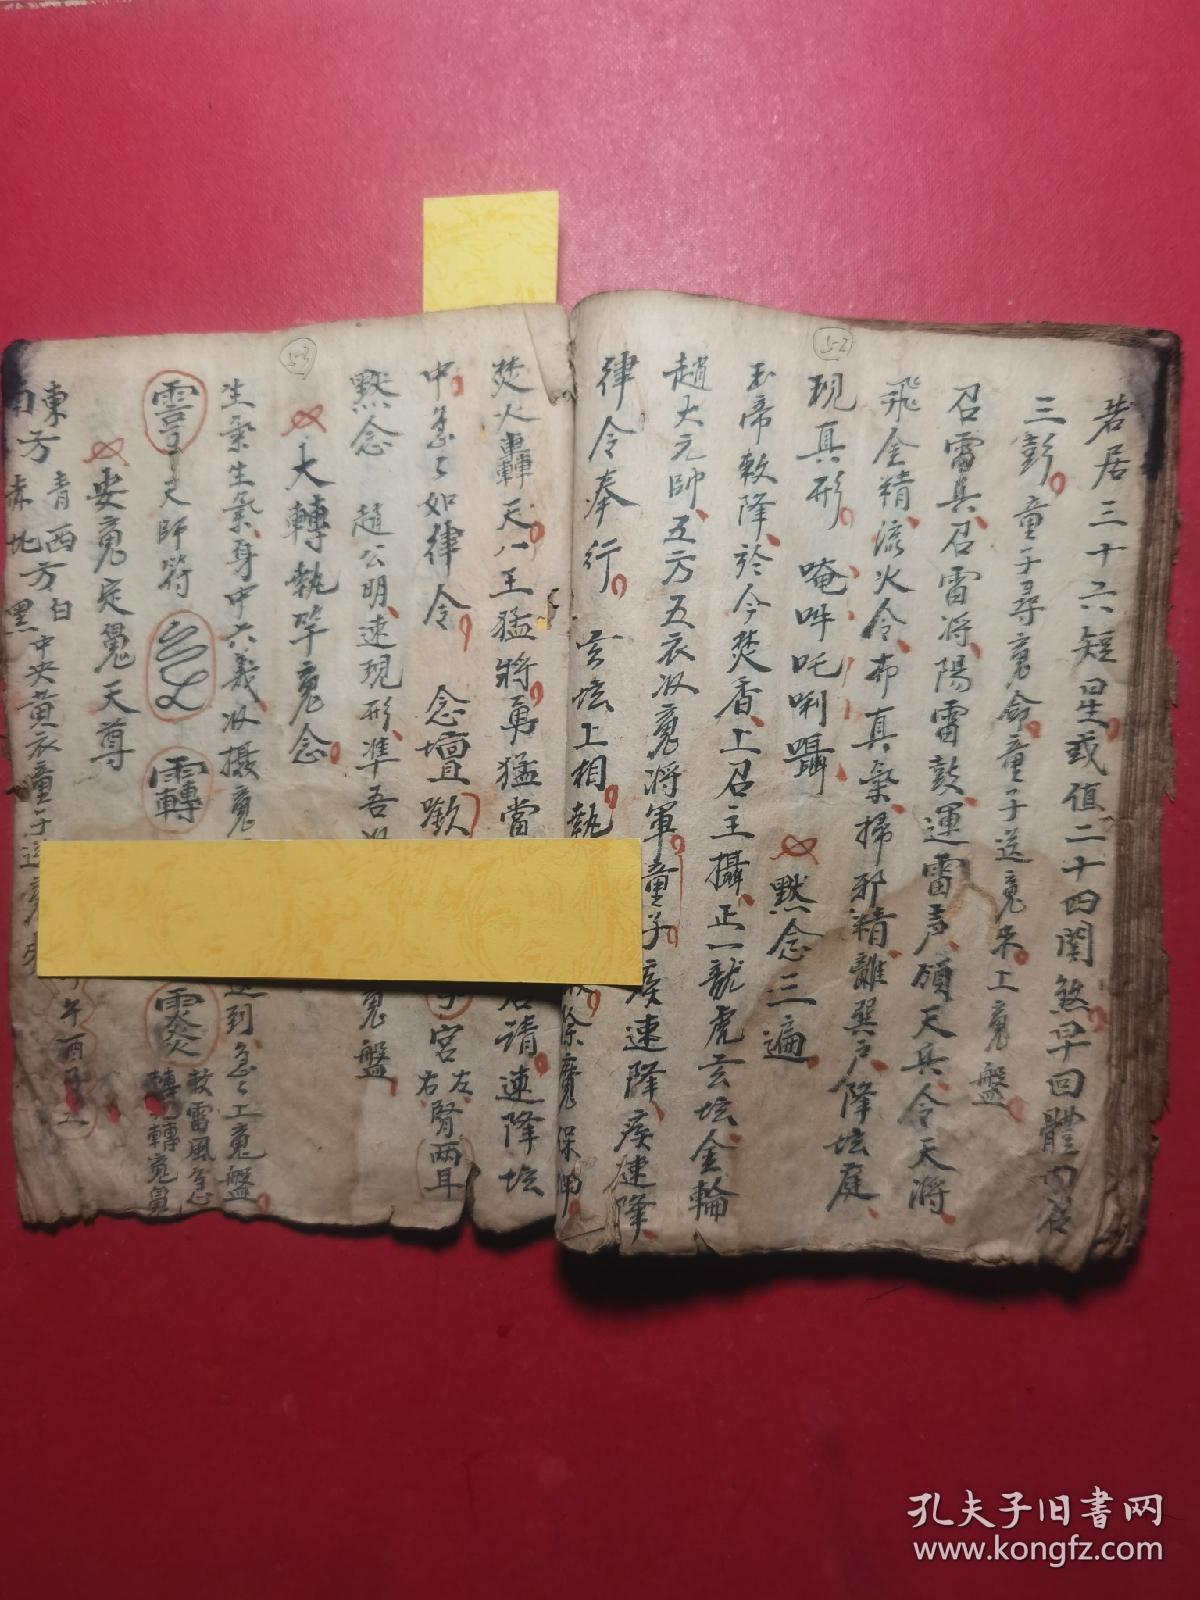 5-2
若居三十六短星或值二十四関煞早回體內
三彭童子尋魂命童子送魂来上魂盤
召雷兵召雷将陽雷鼓運雷声願天兵令天將
飛金精流火令布真炁掃邪精離巽戶降坛庭
現真形唵吽吒唎囁 默念三遍
玉帝敕降於今焚香上召主攝正一龍虎玄坛金輪
趙大元帥五方五衣收魂将軍童子疾速降疾速降
律令奉行玄坛上相執 除魔保
5-3
焚火轟天八王猛將勇猛當 請速降坛
中急々如律令 念壇歡 宮左右腎兩耳
默念 趙公明速現形准吾 魂盤
大轉執竿魂念
生炁生炁身中六義收攝魂 到急々上魂盤
天師符 敕雷風急 轉轉魂
安魂定魄天尊
東方青西方白
南方赤北黑中央黃衣童子送魂
孔夫子旧書网
www.kongfz.com